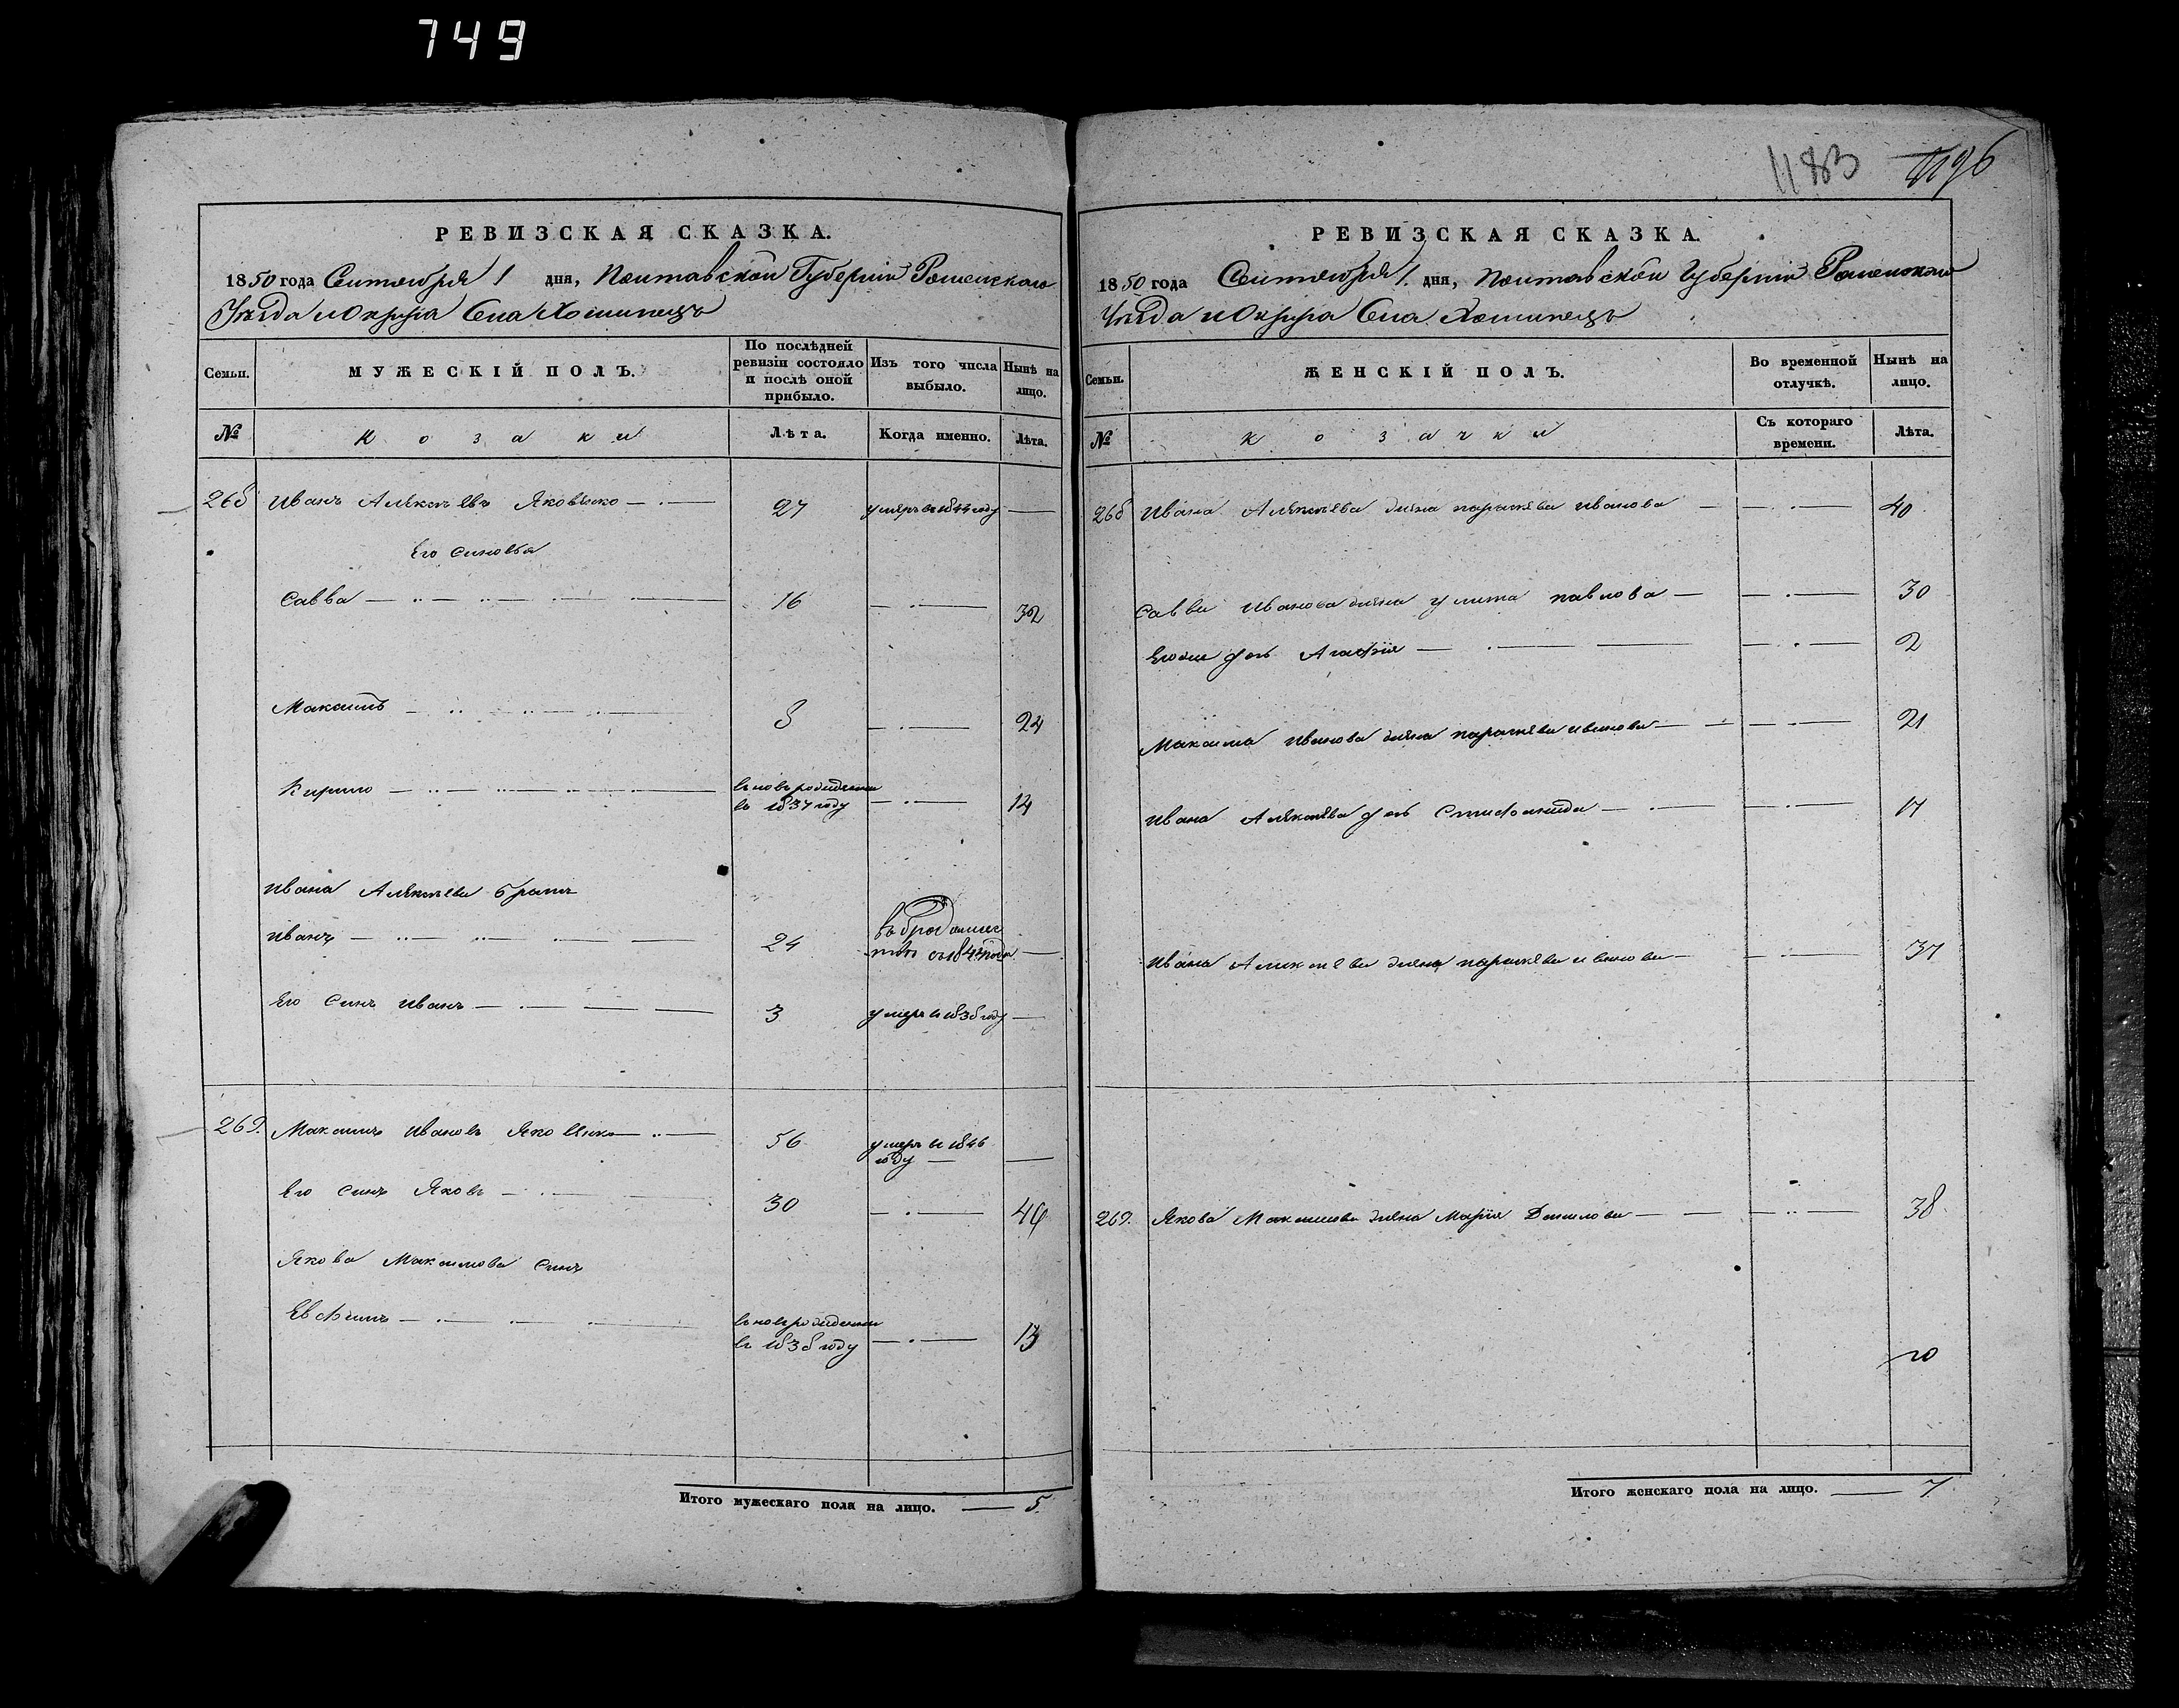 749
РЕВИЗСКАЯ СКАЗКА.
1850 года Сентября 1 дня, Полтавской Губерніи Роменского
Уѣзда и Округа Села
Семьи.
МУЖЕСКІЙ ПОЛЪ.
По послѣдней ревизіи состояло и послѣ оной прибыло.
Изъ того числа выбыло.
Нынѣ на лицо.
№
козаки
Лѣта.
Когда именно.
Лѣта.
268 Иванъ Алексѣевъ Яковенко 27 умеръ въ 1844 году
Его синовья
Савва 16 32
Максимъ 8 24
Кирило вновь рожденни 14
въ 1837 году
Ивана Алексѣева братъ
Иванъ 24 въ бродяжес
тве съ году
Его синъ Иванъ 3 умеръ въ 1838 году
269. Максимъ Ивановъ Яковенко 56 умеръ въ 1846
году
Его синъ Яковъ 30 46
Якова Максимова синъ
Евфимъ вновь рожденни 13
въ 1838 году
Итого мужескаго пола на лицо. 5.
1183 1196
РЕВИЗСКАЯ СКАЗКА.
1850 года Сентября 1. дня, Полтавской Губерніи Роменского
Уѣзда и Округа Села
Семьи.
ЖЕНСКІЙ ПОЛЪ.
Во временной отлучкѣ.
Нынѣ на лицо.
№
козачки
Съ котораго времени.
Лѣта.
268 Ивана Алексѣева жена Параскева Иванова 40
Саввы Иванова жена Улита Павлова 30
Егоже дочь Агафія 2
Максима Иванова жена Параскева Иванова 21
Ивана Алексѣева дочь 17
Ивана Алексѣева жена Параскева Иванова 37
269. Якова Максимова жена Марія Данилова 38
Итого женскаго пола на лицо. 7